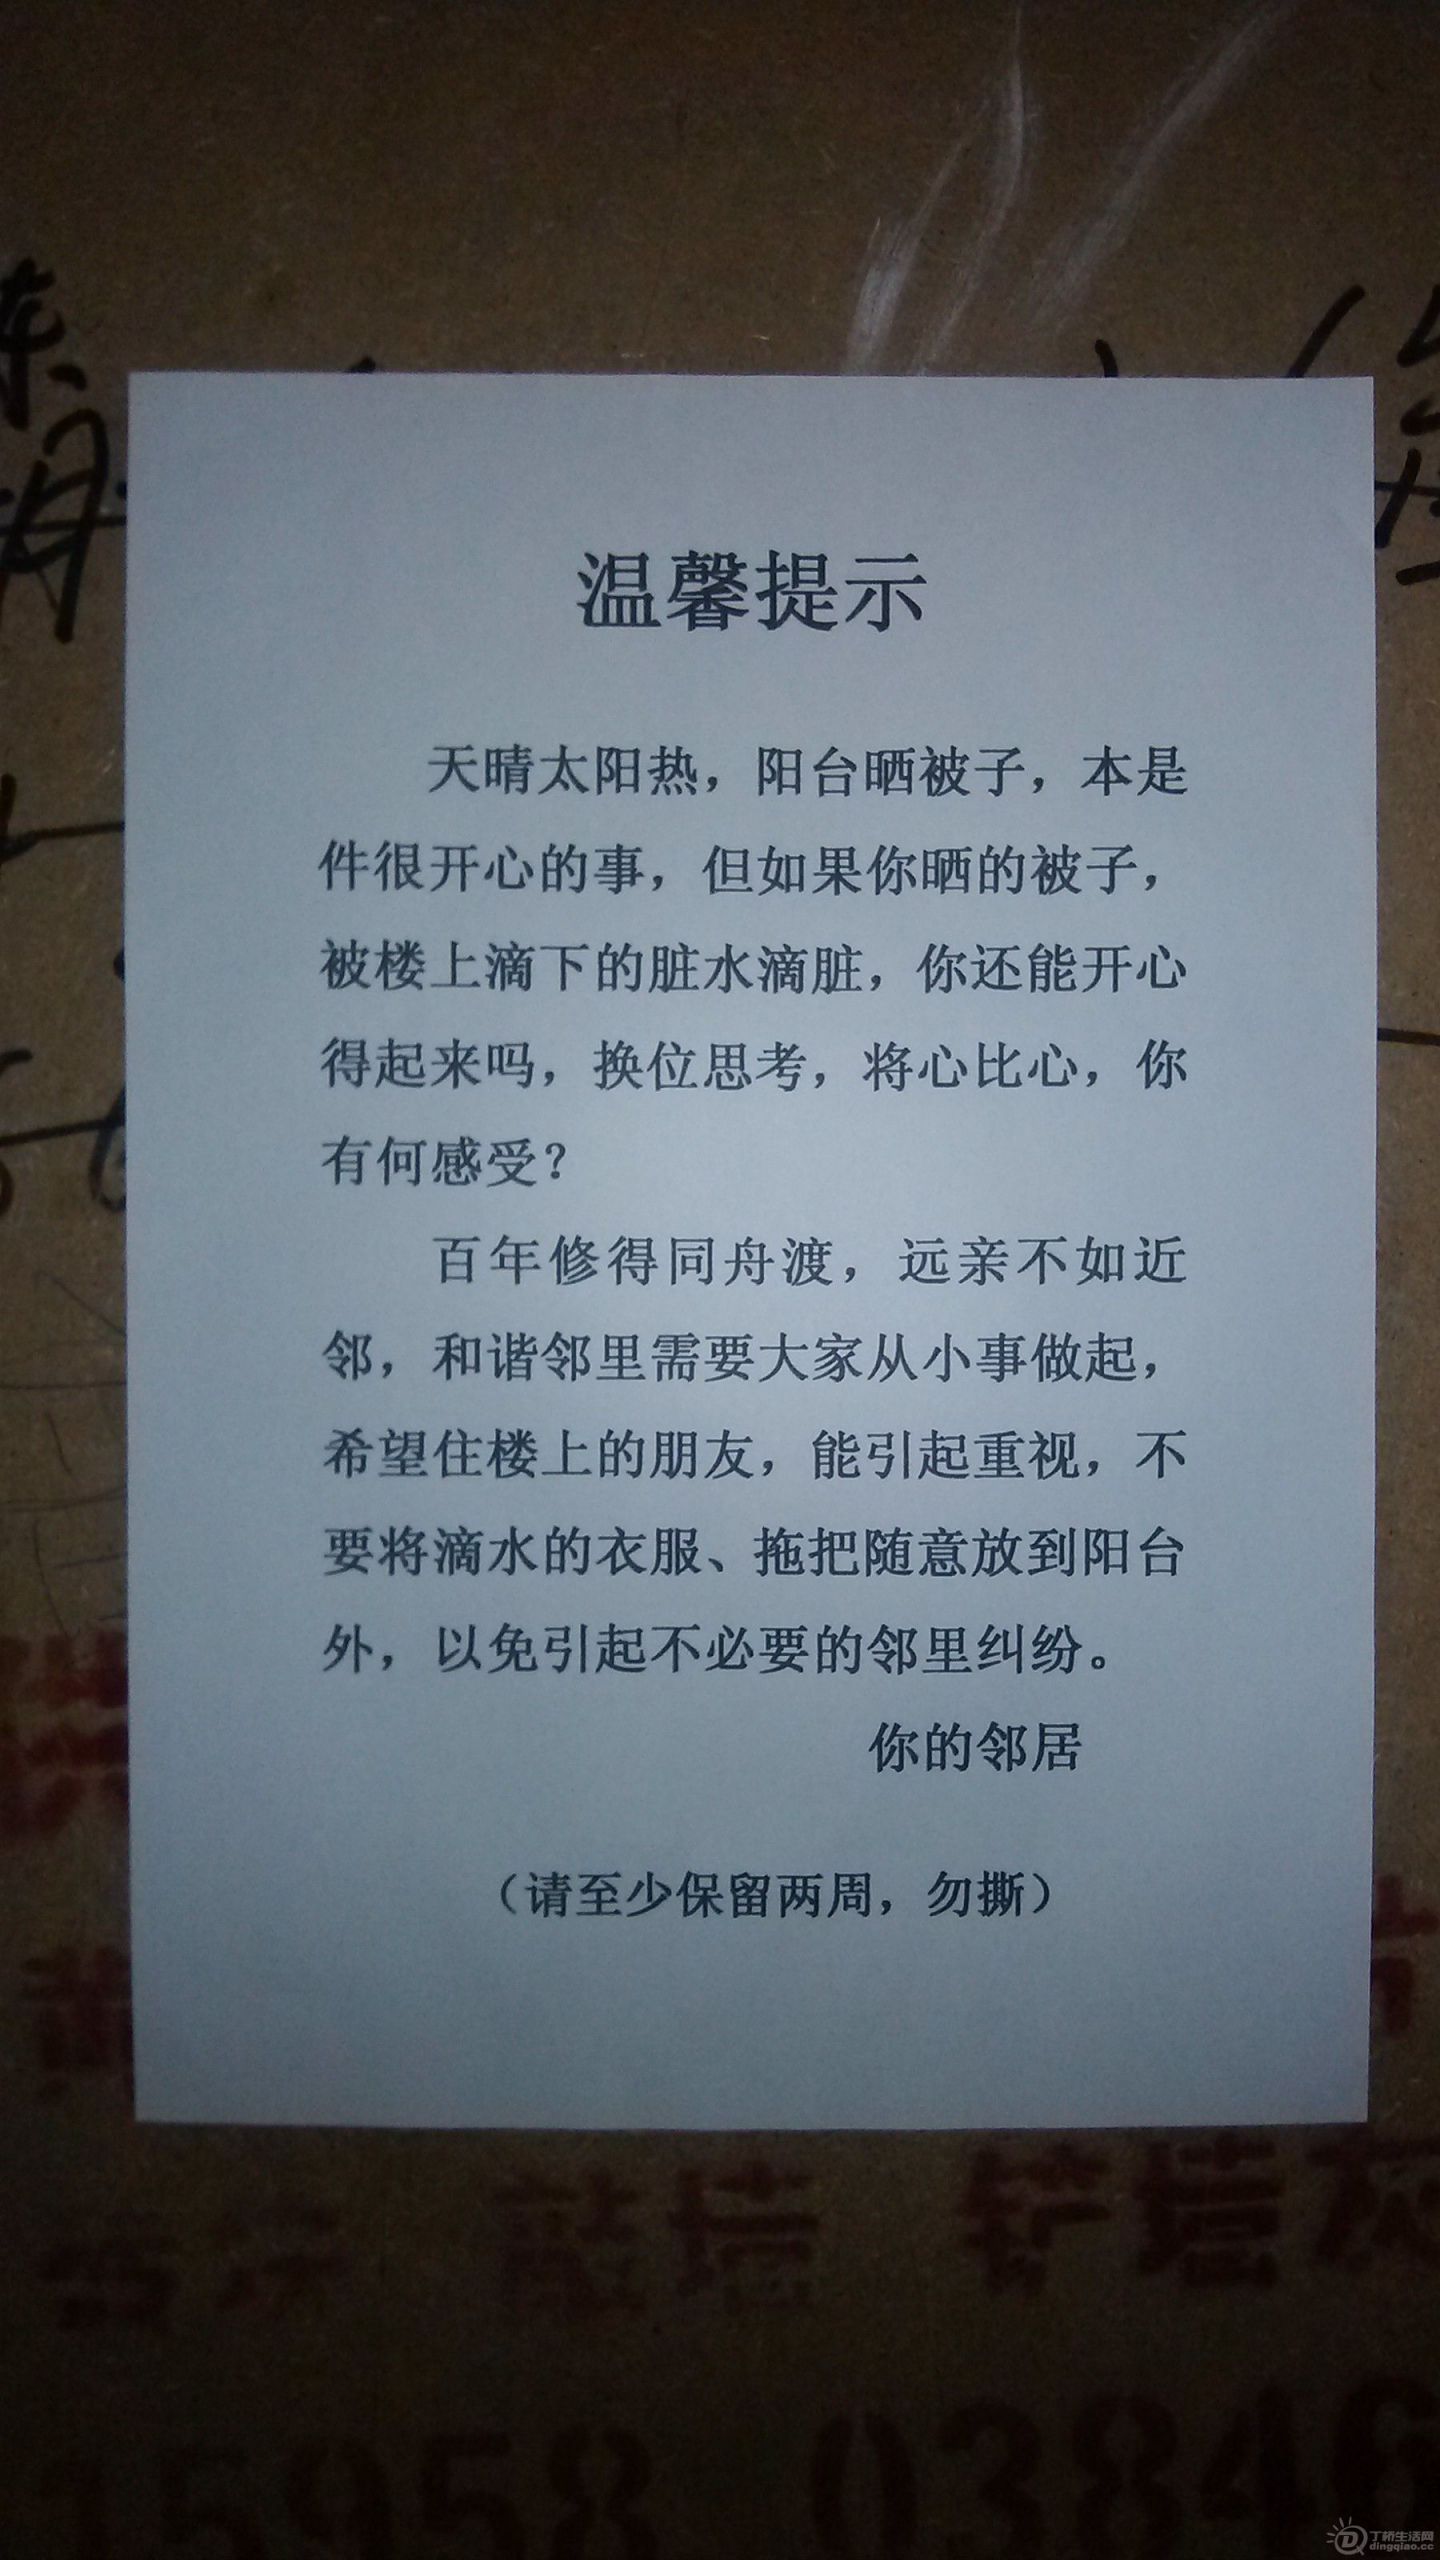 温馨提示
天晴太阳热，阳台晒被子，本是
件很开心的事，但如果你晒的被子，
被楼上滴下的脏水滴脏，你还能开心
得起来吗，换位思考，将心比心，你
有何感受？
百年修得同舟渡，远亲不如近
邻，和谐邻里需要大家从小事做起，
希望住楼上的朋友，能引起重视，不
要将滴水的衣服、拖把随意放到阳台
外，以免引起不必要的邻里纠纷。
你的邻居
（请至少保留两周，勿撕）
敲墙 铲墙灰
15958 03846
丁桥生活网
dingqiao.cc